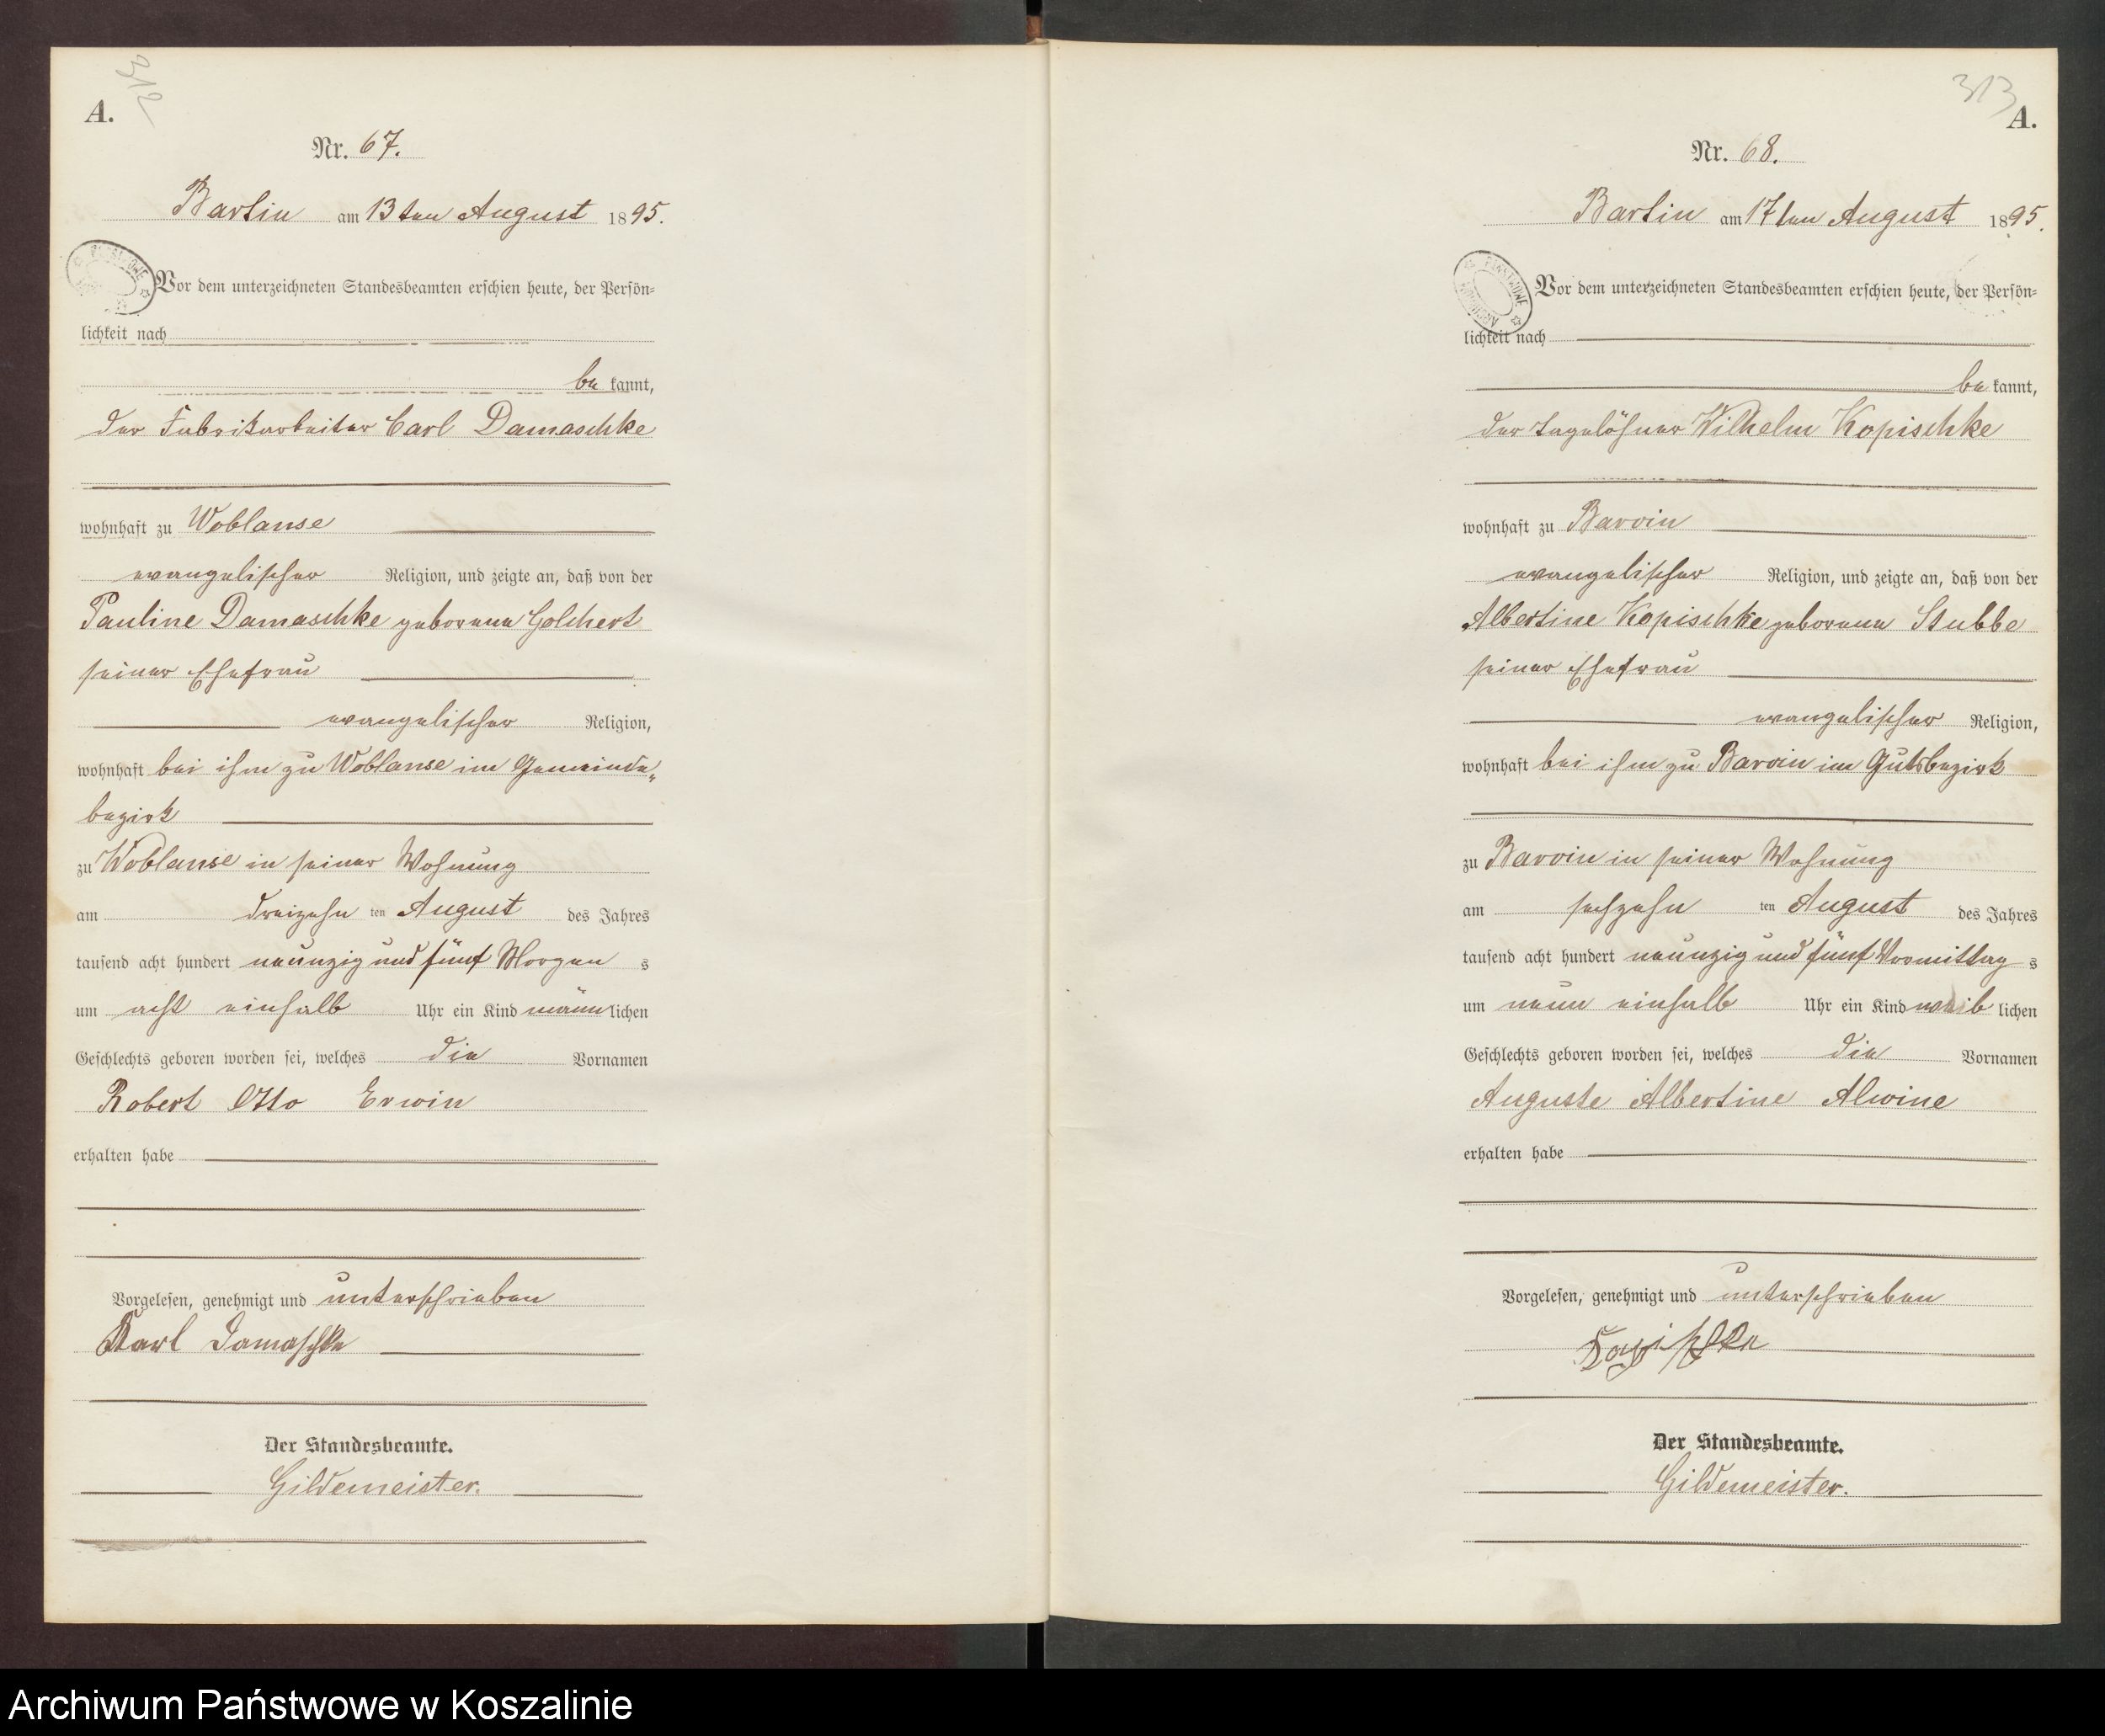 312
A.
Nr. 67.
Bartin am 13ten August 1895.
Vor dem unterzeichneten Standesbeamten erschien heute, der Persön=
lichkeit nach
be kannt,
der Fabrikarbeiter Carl Damaschke
wohnhaft zu Woblanse
evangelischer Religion, und zeigte an, daß von der
Pauline Damaschke geborene Golchert
seiner Ehefrau
evangelischer Religion,
wohnhaft bei ihm zu Woblanse im Gemeinde„
bezirk
zu Woblanse in seiner Wohnung
am dreizehn ten August des Jahres
tausend acht hundert neunzig und fünf Morgen s
um acht einhalb Uhr ein Kind männ lichen
Geschlechts geboren worden sei, welches die Vornamen
Robert Otto Erwin
erhalten habe
Vorgelesen, genehmigt und unterschrieben
Karl Damaschke
Der Standesbeamte.
Gildemeister.
313
A.
Nr. 68.
Bartin am 17ten August 1895.
Vor dem unterzeichneten Standesbeamten erschien heute, der Persön=
lichkeit nach
be kannt,
der Tagelöhner Wilhelm Kopischke
wohnhaft zu Barvin
evangelischer Religion, und zeigte an, daß von der
Albertine Kopischke geborene Stubbe
seiner Ehefrau
evangelischer Religion,
wohnhaft bei ihm zu Barvin im Gutsbezirk
zu Barvin in seiner Wohnung
am sechzehn ten August des Jahres
tausend acht hundert neunzig und fünf Vormittag s
um neun einhalb Uhr ein Kind weib lichen
Geschlechts geboren worden sei, welches die Vornamen
Auguste Albertine Alwine
erhalten habe
Vorgelesen, genehmigt und unterschrieben
Kopischke
Der Standesbeamte.
Gildemeister.
Archiwum Państwowe w Koszalinie